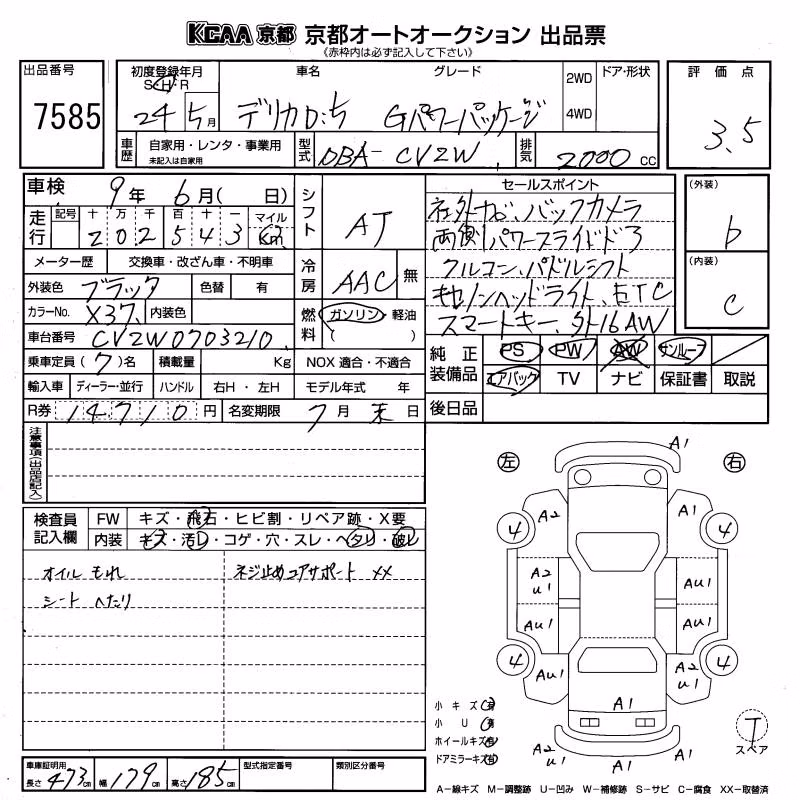 KCAA 京都 京都オートオークション 出品票
《赤枠内は必ず記入して下さい》
出品番号
7585
初度登録年月 車名 グレード 2WD ドア・形状
S・H・R
24 5月 デリカD:5 Gパワーパッケージ 4WD
車歴 自家用・レンタ・事業用 型式 DBA- CV2W 排気 2000 CC
未記入は自家用
評価点
3.5
車検 9年 6月( 日)
走行 記号 十 万 千 百 十 一 マイル
2 0 2 5 4 3 Km
メーター歴 交換車・改ざん車・不明車
外装色 ブラック 色替 有
カラーNo. X37 内装色
車台番号 CV2W0703210
乗車定員 (7)名 積載量 Kg NOX 適合・不適合
輸入車 ディーラー・並行 ハンドル 右H・左H モデル年式 年
R券 14,710円 名変期限 7月 末日
シフト AT
冷房 AAC 無
燃料 ガソリン・軽油
( )
セールスポイント
社外ナビ、バックカメラ
両側パワースライドドア
クルコン、パドルシフト
キセノンヘッドライト、ETC
スマートキー、外16AW
(外装)
b
(内装)
C
純正装備品 PS PW AW サンルーフ
エアバック TV ナビ 保証書 取説
後日品
注意事項(出品店記入)
検査員記入欄 FW キズ・飛石・ヒビ割・リペア跡・X要
内装 キズ・汚レ・コゲ・穴・スレ・ヘタリ・破レ
オイルもれ ネジ止めコアサポート XX
シート へたり
左 右
A1
4 A2 A1 4
A2 U1 AU1
AU1 AU1
4 AU1 A2 U1 4
A1
A2 U1 A1
小キズ(有)
小U(有)
ホイールキズ(有)
ドアミラーキズ(有)
T
スペア
車庫証明用 長さ 473cm 幅 179cm 高さ 185cm 型式指定番号 類別区分番号
A−線キズ M−調整跡 U−凹み W−補修跡 S−サビ C−腐食 XX−取替済